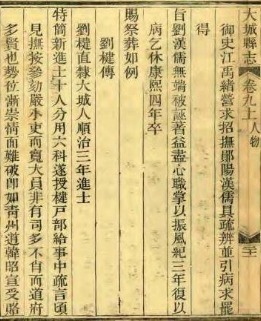 大城縣志
卷九上 人物
二十
御史江禹緒營求招撫鄖陽漢儒具疏辨並引病求罷
得
旨劉漢儒無端被誣著益盡心職掌以振風紀三年復以
病乙休康熙四年卒
賜祭葬如例
劉楗傳
劉楗直隸大城人順治三年進士
特簡新進士十人分用六科遂授楗戸部給事中疏言頃
見撫按參劾嚴小吏而寬大員非有司多不肖而道府
多賢也勢位漸崇情面難破即如靑州道韓昭宣受賂